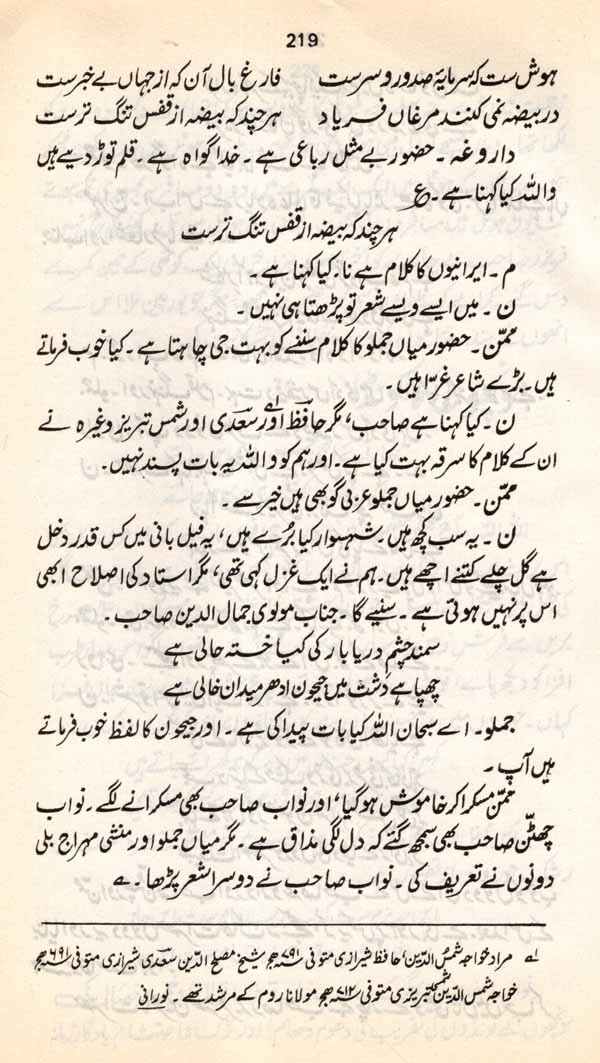 219
ہوش ست کہ سرمایۂ صدور و سرست فارغ بال آن کہ از جہاں بے خبر ست
در بیضہ نمی کنند مرغاں فریاد ہر چند کہ بیضہ از قفس تنگ ترست
داروغہ ۔ حضور بے مثل رباعی ہے ۔ خدا گواہ ہے ۔ قلم توڑ دیے ہیں
واللہ کیا کہنا ہے ۔ ع
ہر چند کہ بیضہ از قفس تنگ ترست
م ۔ ایرانیوں کا کلام ہے نا ۔ کیا کہنا ہے ۔
ن ۔ میں ایسے ویسے شعر تو پڑھتا ہی نہیں ۔
ممّن ۔ حضور میاں جملو کا کلام سننے کو بہت جی چاہتا ہے ۔ کیا خوب فرماتے
ہیں ۔ بڑے شاعر غرّا ہیں ۔
ن ۔ کیا کہنا ہے صاحب، مگر حافظؔ اور سعدیؔ اور شمس تبریز وغیرہ نے
ان کے کلام کا سرقہ بہت کیا ہے ۔ اور ہم کو واللہ یہ بات پسند نہیں ۔
ممّن ۔ حضور میاں جملو عربی گو بھی ہیں خیر سے ۔
ن ۔ یہ سب کچھ ہیں ۔ شہسوار کیا بُرے ہیں، یہ فیل بانی میں کس قدر دخل
ہے گل چلے کتنے اچھے ہیں ۔ ہم نے ایک غزل کہی تھی، مگر استاد کی اصلاح ابھی
اس پر نہیں ہوتی ہے ۔ سنیے گا ۔ جناب مولوی جمال الدین صاحب ۔
سمندِ چشمِ دریا بار کی کیا خستہ حالی ہے
چھپا ہے دشت میں جیحون ادھر میدان خالی ہے
جملو ۔ اے سبحان اللہ کیا بات پیدا کی ہے ۔ اور جیحون کا لفظ خوب فرماتے
ہیں آپ ۔
ممّن مسکرا کر خاموش ہو گیا، اور نواب صاحب بھی مسکرانے لگے ۔ نواب
چھٹّن صاحب بھی سمجھ گئے کہ دل لگی مذاق ہے ۔ مگر میاں جملو اور منشی مہراج بلی
دونوں نے تعریف کی ۔ نواب صاحب نے دوسرا شعر پڑھا ۔
۱؎ مراد خواجہ شمسُ الدّین، حافظ شیرازی متوفی ۷۹۱ھ شیخ مصلح الدّین سعدی شیرازی متوفی ۶۹۱ھ
خواجہ شمس الدّین شمس تبریزی متوفی ۷۱۲ھ مولانا روم کے مرشد تھے ۔ نورانی